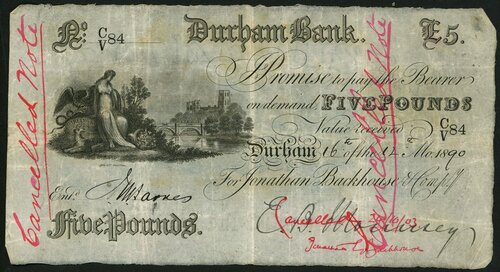 Cancelled Note
No. C/V 84 Durham Bank. £5.
I Promise to pay the Bearer
on demand FIVE POUNDS
Value received C/V 84
Durham 16th of the 12th Mo. 1890
For Jonathan Backhouse & Comp.y
Ent.d
Five Pounds.
Cancelled
Jonathan Backhouse
Cancelled Note